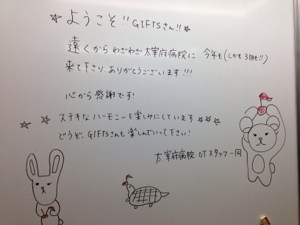 ☆ようこそ!! GIFTSさん!!☆
遠くから わざわざ 太宰府病院に 今年も(しかも3回も!!)
来て下さり、ありがとうございます!!!
心から感謝です!
☆ステキなハーモニーを楽しみにしています☆☆☆
どうぞ、GIFTSさんも楽しんでいって下さい!
太宰府病院 OTスタッフ一同